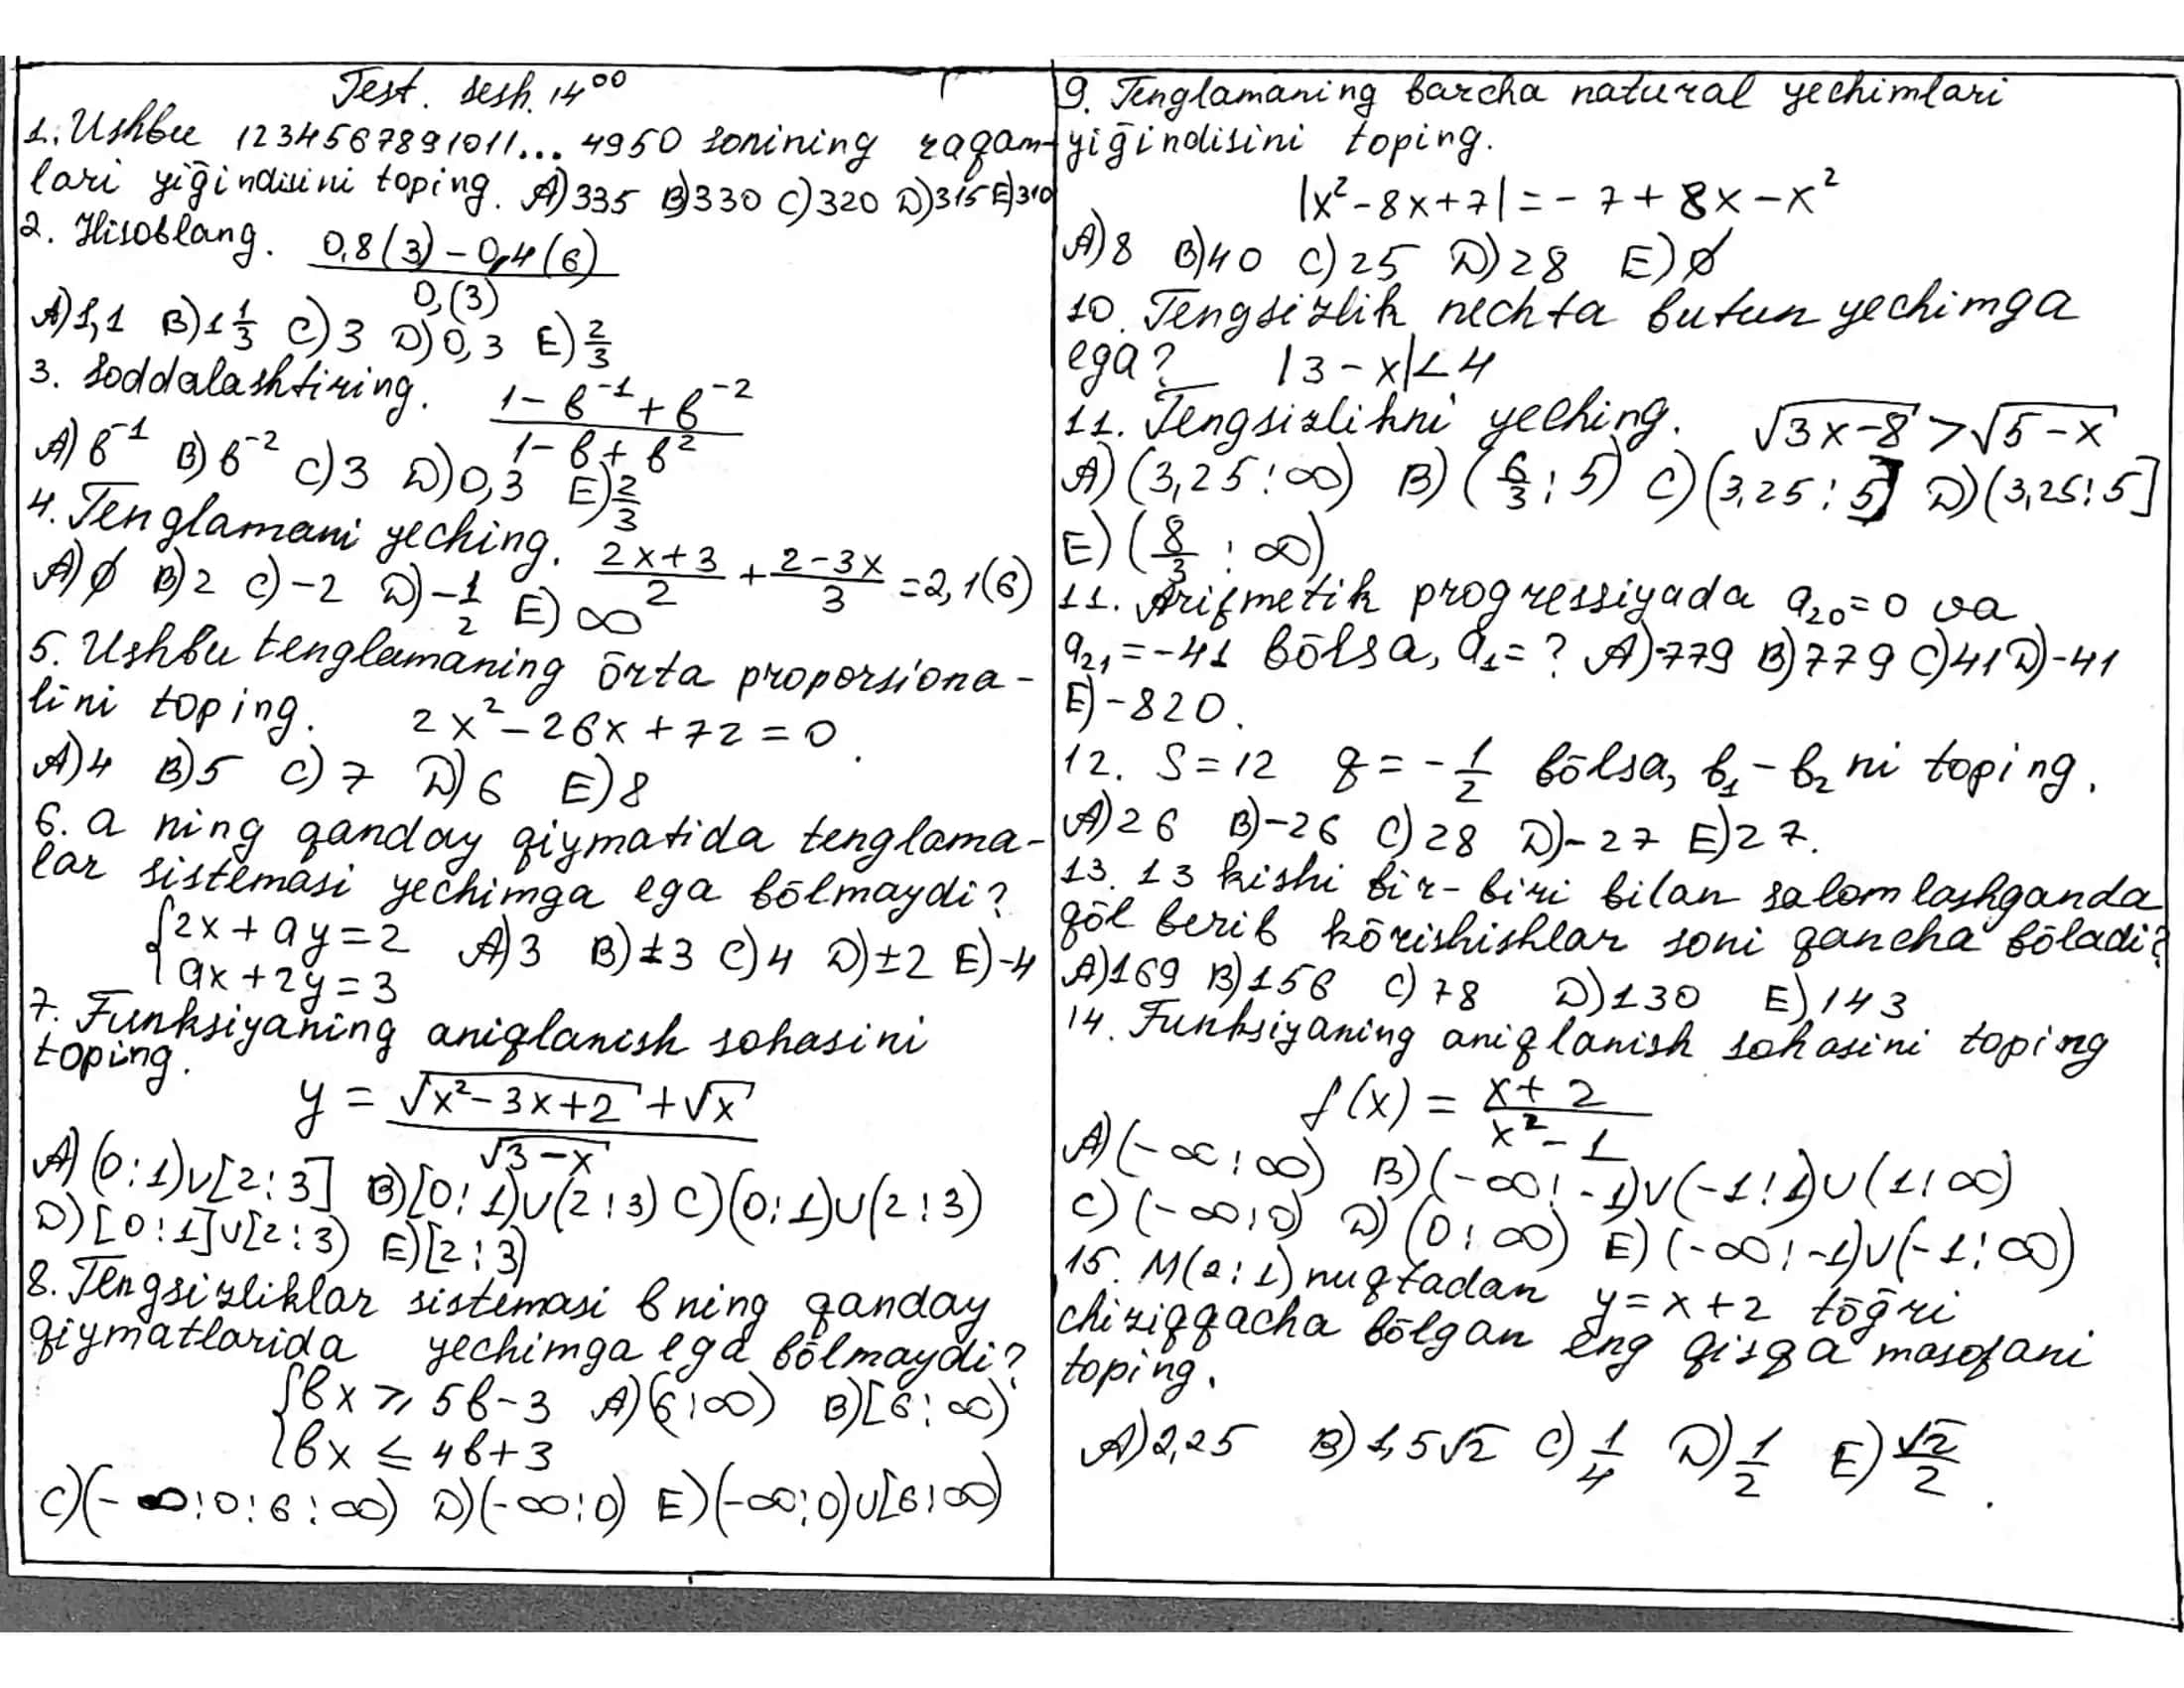 Test. sesh. 14⁰⁰
1. Ushbu 1234567891011... 4950 sonining raqam-
lari yiḡindisini toping. A) 335 B) 330 C) 320 D) 315 E) 310
2. Hisoblang. (0,8(3) - 0,4(6)) / 0,(3)
A) 1,1 B) 1 1/3 C) 3 D) 0,3 E) 2/3
3. Soddalashtiring. (1 - b⁻¹ + b⁻²) / (1 - b + b²)
A) b⁻¹ B) b⁻² C) 3 D) 0,3 E) 2/3
4. Tenglamani yeching. (2x+3)/2 + (2-3x)/3 = 2,1(6)
A) ∅ B) 2 C) -2 D) -1/2 E) ∞
5. Ushbu tenglamaning ōrta proporsiona-
lini toping. 2x² - 26x + 72 = 0.
A) 4 B) 5 C) 7 D) 6 E) 8
6. a ning qanday qiymatida tenglama-
lar sistemasi yechimga ega bōlmaydi?
{2x + ay = 2
{ax + 2y = 3 A) 3 B) ±3 C) 4 D) ±2 E) -4
7. Funksiyaning aniqlanish sohasini
toping.
y = (√(x² - 3x + 2) + √x) / √(3 - x)
A) (0;1)∪[2;3] B) [0;1)∪(2;3) C) (0;1)∪(2;3)
D) [0;1]∪[2;3) E) [2;3)
8. Tengsizliklar sistemasi b ning qanday
qiymatlarida yechimga ega bōlmaydi?
{bx ⩾ 5b-3 A) (6;∞) B) [6;∞)
{bx ≤ 4b+3
C) (-∞;0;6;∞) D) (-∞;0) E) (-∞;0)∪[6;∞)
9. Tenglamaning barcha natural yechimlari
yiḡindisini toping.
|x² - 8x + 7| = -7 + 8x - x²
A) 8 B) 40 C) 25 D) 28 E) ∅
10. Tengsizlik nechta butun yechimga
ega? |3 - x| < 4
11. Tengsizlikni yeching. √(3x-8) > √(5-x)
A) (3,25;∞) B) (6/3;5) C) (3,25;5] D) (3,25;5]
E) (8/3;∞)
11. Arifmetik progressiyada a₂₀=0 va
a₂₁=-41 bōlsa, a₁=? A) -779 B) 779 C) 41 D) -41
E) -820.
12. S=12 q = -1/2 bōlsa, b₁ - b₂ ni toping.
A) 26 B) -26 C) 28 D) -27 E) 27.
13. 13 kishi bir-biri bilan salomlashganda
qōl berib kōrishishlar soni qancha bōladi?
A) 169 B) 156 C) 78 D) 130 E) 143
14. Funksiyaning aniqlanish sohasini toping
f(x) = (x+2)/(x²-1)
A) (-∞;∞) B) (-∞;-1)∪(-1;1)∪(1;∞)
C) (-∞;0) D) (0;∞) E) (-∞;-1)∪(-1;∞)
15. M(2;1) nuqtadan y = x+2 tōḡri
chiziqqacha bōlgan eng qisqa masofani
toping.
A) 2,25 B) 1,5√2 C) 1/4 D) 1/2 E) √2/2.